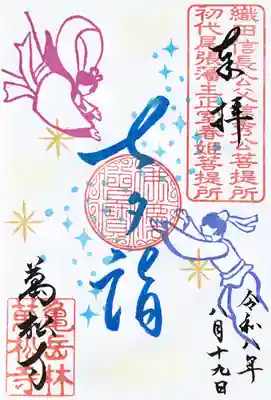 織田信長公父信秀公菩提所
初代尾張藩主正室春姫菩提所
奉拝
七夕詣
令和八年
八月十九日
萬松寺
亀岳林
萬松寺